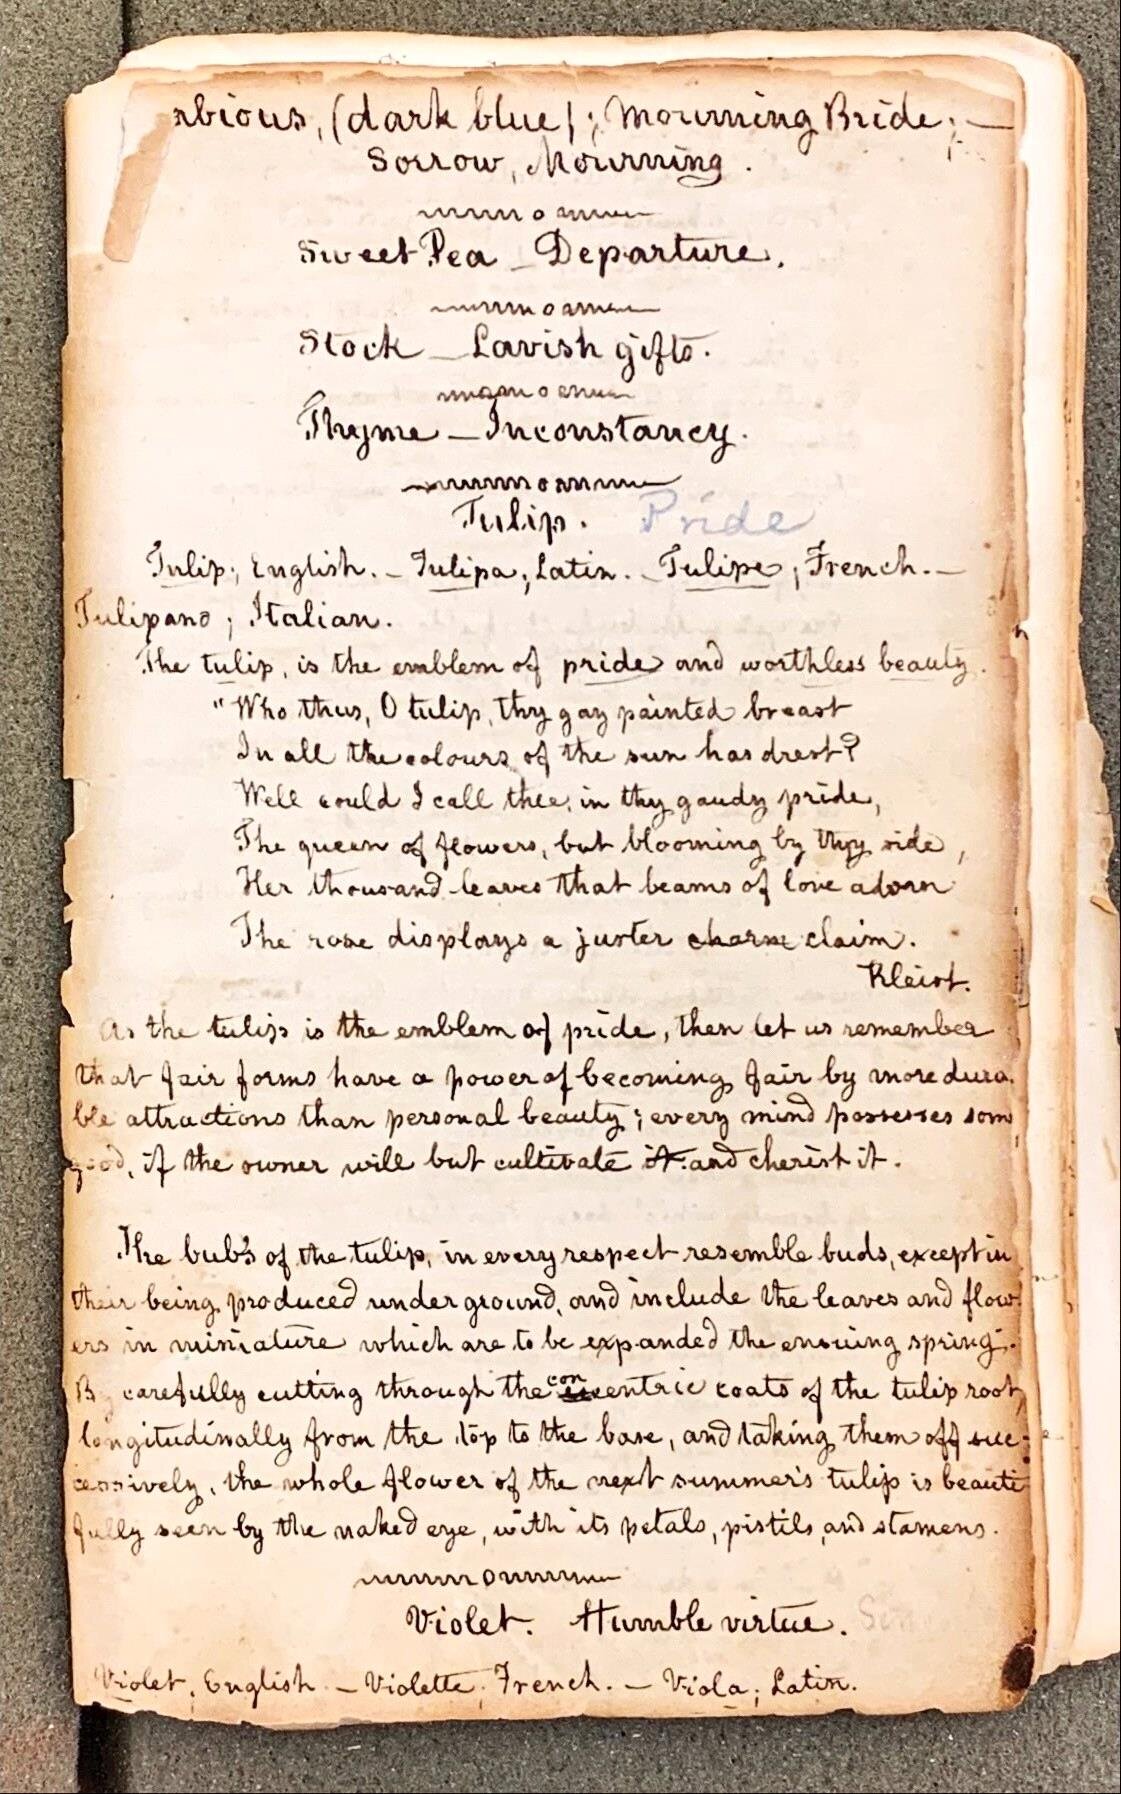 abious, (dark blue); Mourning Bride; —
Sorrow, Mourning.
Sweet Pea – Departure.
Stock – Lavish gifts.
Thyme – Inconstancy.
Tulip. Pride
Tulip; English. – Tulipa; Latin. – Tulipe; French. –
Tulipano; Italian.
The tulip, is the emblem of pride and worthless beauty.
"Who thus, O tulip, thy gay painted breast
In all the colours of the sun has drest?
Well could I call thee, in thy gaudy pride,
The queen of flowers, but blooming by thy side,
Her thousand leaves that beams of love adorn
The rose displays a juster charm claim.
Kleist.
As the tulip is the emblem of pride, then let us remember
that fair forms have a power of becoming fair by more dura
ble attractions than personal beauty; every mind possesses som
good, if the owner will but cultivate it and cherist it.
The bubs of the tulip, in every respect resemble buds, except in
their being produced under ground, and include the leaves and flow
ers in miniature which are to be expanded the ensuing spring.
By carefully cutting through the concentric coats of the tulip root,
longitudinally from the top to the base, and taking them off suc-
cessively, the whole flower of the next summer's tulip is beauti
fully seen by the naked eye, with its petals, pistils, and stamens.
Violet. Humble virtue.
Violet, English – Violette, French. – Viola; Latin.